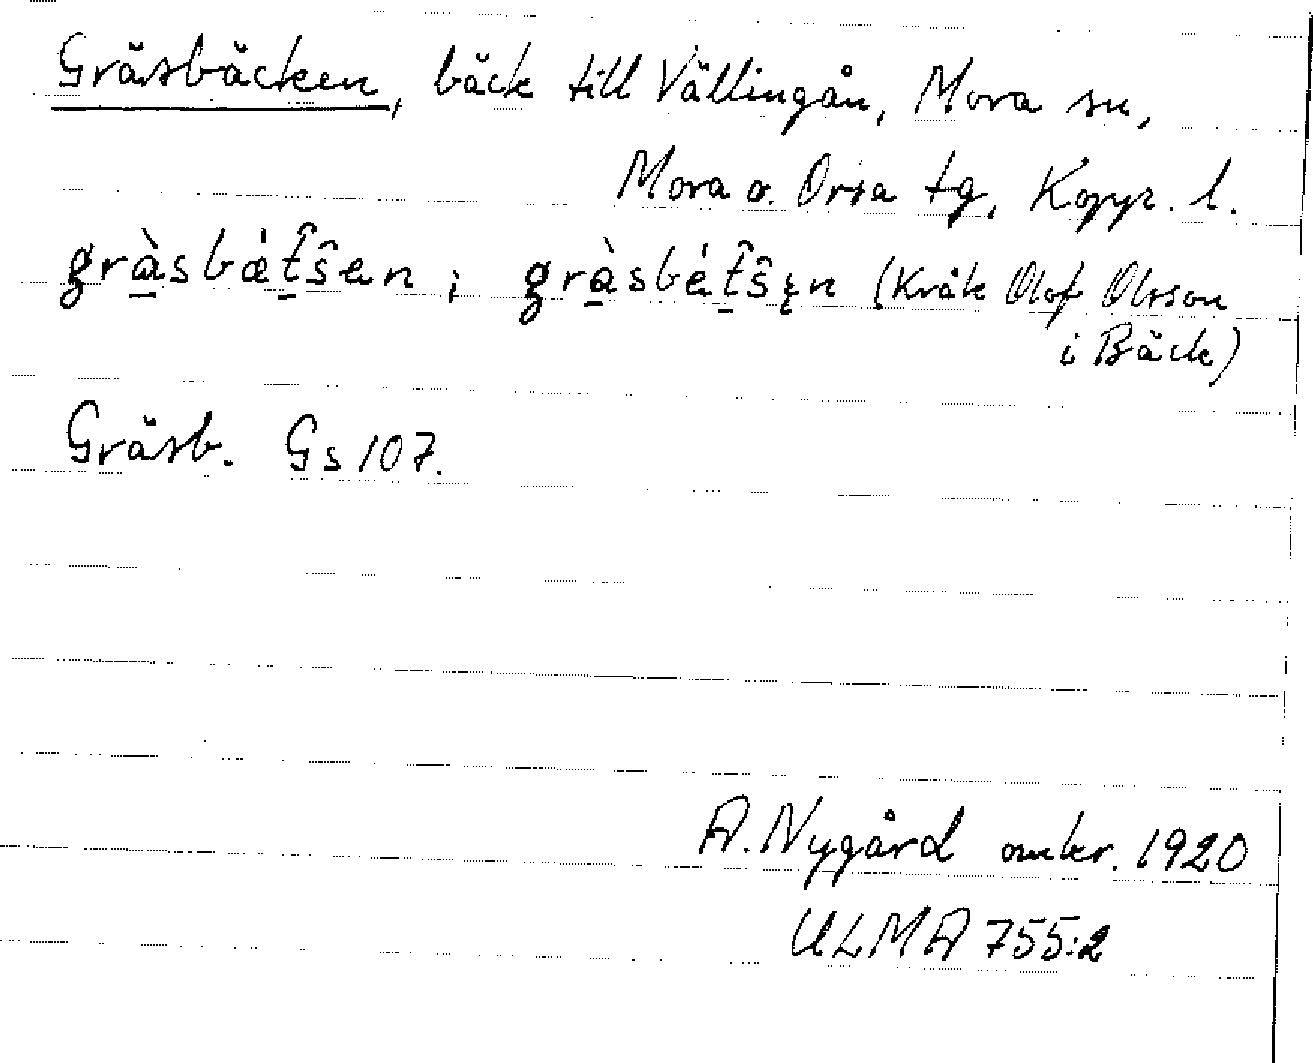 Gräsbäcken, bäck till Vällingån, Mora sn,
Mora o. Orsa tg, Koppr. l.
gràsbát̂ŝen ; gràsbét̂ŝęn (Kråk Olof Olsson
i Bäck)
Gräsb. Gs 107.
A. Nygård omkr. 1920
ULMA 755:2